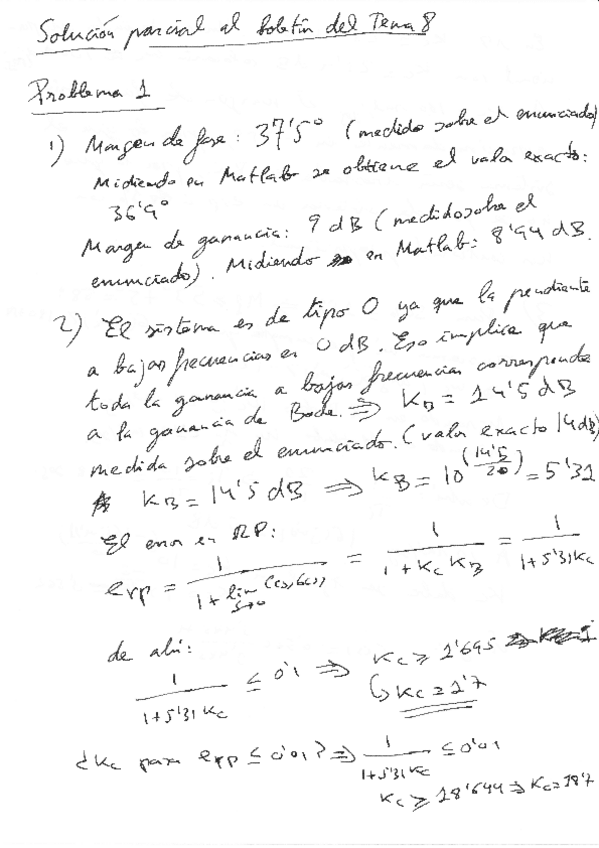 Solución parcial al boletín del Tema 8
Problema 1
1) Margen de fase: 37'5° (medido sobre el enunciado)
Midiendo en Matlab se obtiene el valor exacto:
36'9°
Margen de ganancia: 9 dB (medido sobre el
enunciado). Midiendo en Matlab: 8'94 dB.
2) El sistema es de tipo 0 ya que la pendiente
a bajas frecuencias es 0 dB. Eso implica que
toda la ganancia a bajas frecuencias corresponde
a la ganancia de Bode. ⇒ K_B = 14'5 dB
medida sobre el enunciado. (valor exacto 14 dB)
K_B = 14'5 dB ⇒ K_B = 10^(14'5/20) = 5'31
El error en RP:
e_rp = 1/(1 + lim_{s→0} C(s)G(s)) = 1/(1 + K_c K_B) = 1/(1 + 5'31 K_c)
de ahí:
1/(1+5'31 K_c) ≤ 0'1 ⇒ K_c ≥ 1'695
↳ K_c = 1'7
¿K_c para e_rp ≤ 0'01? ⇒ 1/(1+5'31 K_c) ≤ 0'01
K_c ≥ 18'644 ⇒ K_c = 18'7